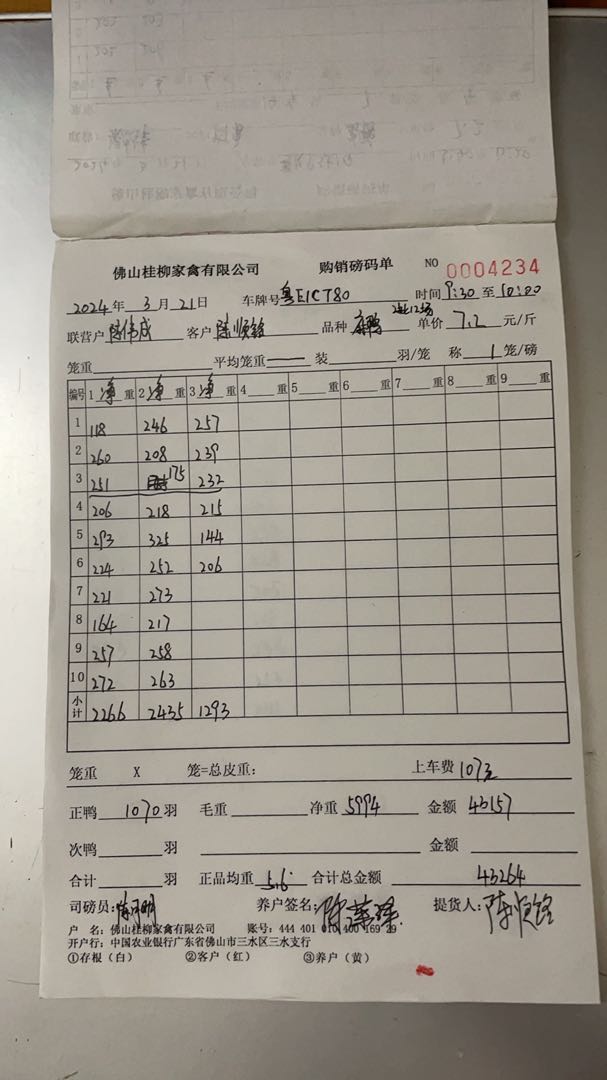 佛山桂柳家禽有限公司 购销磅码单 NO 0004234
2024年 3月 21日 车牌号 粤E1CT80 时间 9:30 至 10:00
联营户 陈伟成 客户 陈顺铨 品种 单价 7.2 元/斤
笼重 平均笼重 — 装 羽/笼 称 1 笼/磅
编号 1 净 重 2 净 重 3 净 重 4 重 5 重 6 重 7 重 8 重 9 重
1 118 246 257
2 260 208 239
3 251 175 232
4 206 218 215
5 293 325 144
6 224 252 206
7 221 273
8 164 217
9 257 258
10 272 263
小计 2266 2435 1293
笼重 X 笼=总皮重: 上车费 107元
正鸭 1070 羽 毛重 净重 5994 金额 43157
次鸭 羽 金额
合计 羽 正品均重 5.6 合计总金额 43264
司磅员: 养户签名: 提货人: 陈顺铨
户 名: 佛山桂柳家禽有限公司 账号: 444 401 010 400 169 29
开户行: 中国农业银行广东省佛山市三水区三水支行
①存根(白) ②客户(红) ③养户(黄)